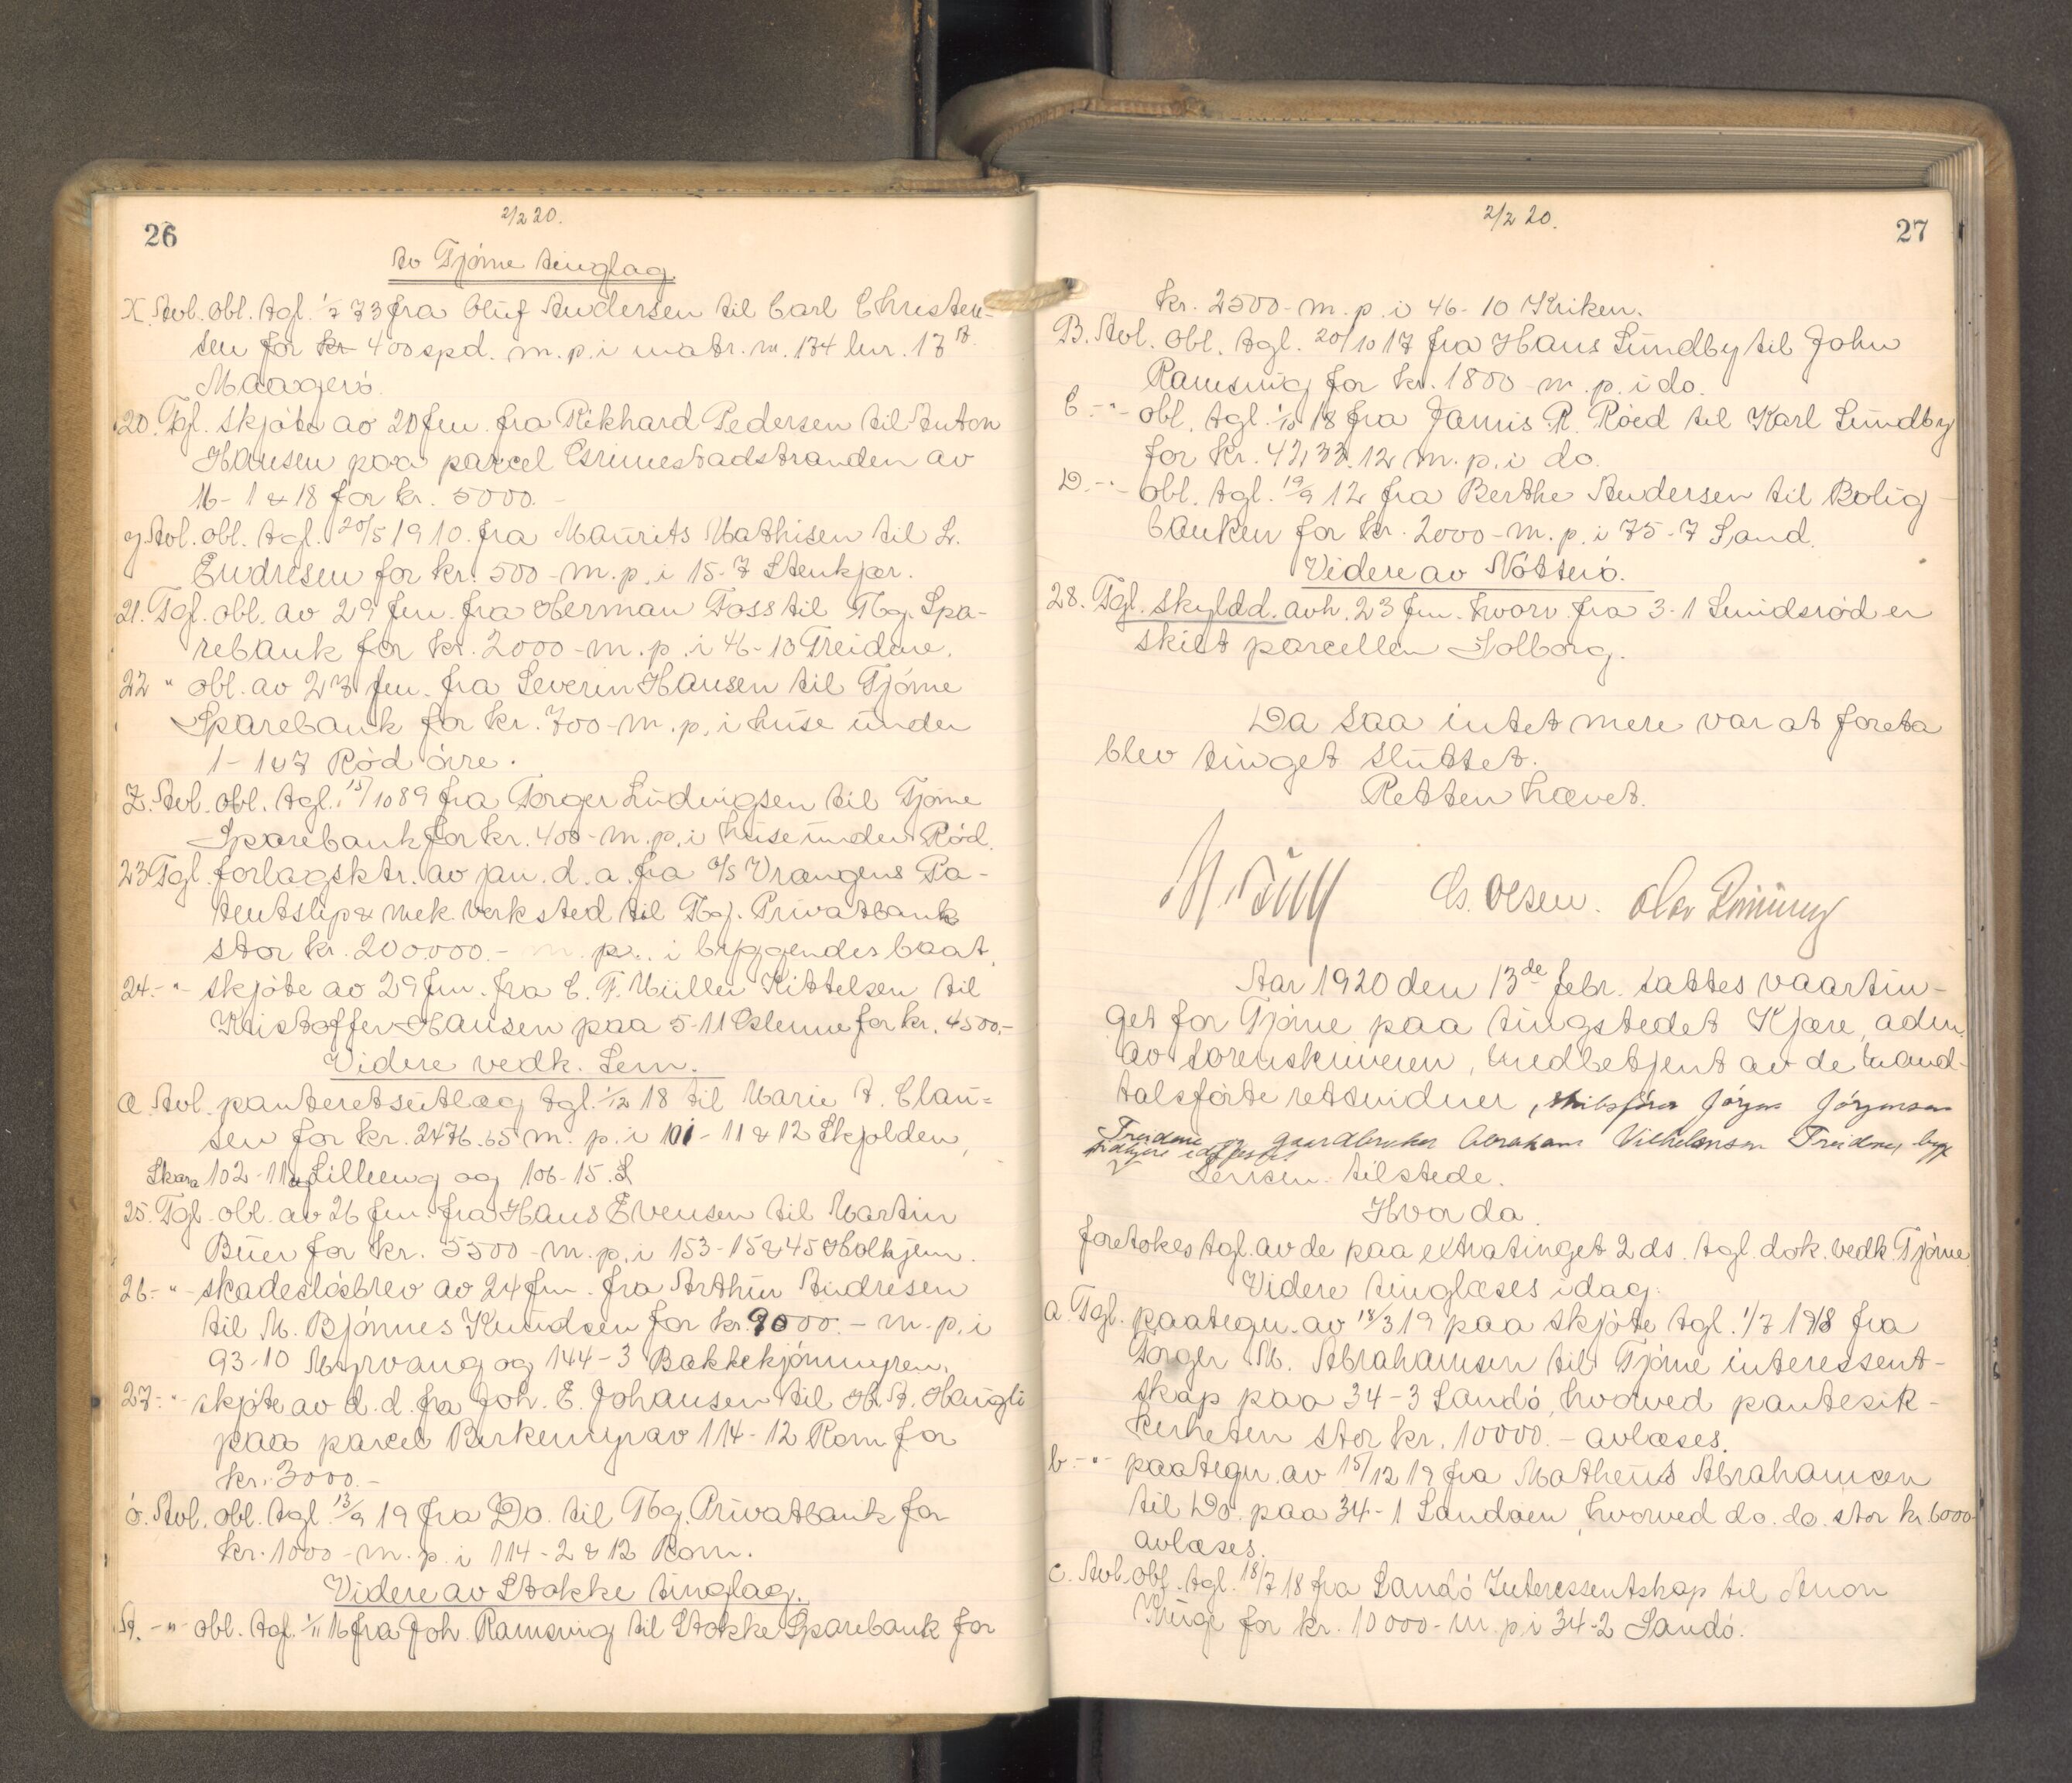 26
2/2 20.
Av Tjøme tinglag
X. Avl. obl. tgl. 1/7 73 fra Oluf Andersen til Carl Christen-
sen for kr 400 spd. m. p. i matr. nr. 134 lnr. 17 a.
Maagerø.
20. Tgl. skjøte av 20 jan. fra Rikhard Pedersen til Anton
Hansen paa parcel Grimestadstranden av
16-1 & 18 for kr. 5000.-
y. Avl. obl. tgl. 20/5 1910. fra Maurits Mathisen til L.
Endresen for kr. 500-m. p. i 15-7 Stenkjær.
21. Tgl. obl. av 29 jan. fra Herman Foss til Tbg. Spa-
rebank for kr. 2000-m. p. i 46-10 Treidene.
22 " obl. av 23 jan. fra Severin Hansen til Tjøme
Sparebank for kr. 700-m. p. i huse under
1-147 Rød øvre.
Z. Avl. obl. tgl. 15/10 89 fra Torger Ludvigsen til Tjøme
Sparebank for kr. 400-m. p. i huse under Rød.
23 Tgl. forlagsktr. av jan. d. a. fra A/S Vrangens Pa-
tentslip & mek. verksted til Tbg. Privatbank
stor kr. 200000.- m. p. i byggendes baat.
24.-"- skjøte av 29 jan. fra C. F. Müller Kittelsen til
Kristoffer Hansen paa 5-11 Oslenne for kr. 4500.-
Videre vedk. Sem.
Æ. Avl. panteretsutlæg tgl. 1/12 18 til Marie A. Clau-
sen for kr. 2476.65 m. p. i 101-11 & 12 Skjolden,
Skara 102-11 og Lilleeng og 106-15. L
25. Tgl. obl. av 26 jan. fra Hans Evensen til Martin
Buer for kr. 5500-m. p. i 153-15 & 45 Holhjem.
26.-"- skadesløsbrev av 24 jan. fra Arthur Andresen
til M. Bjønnes Knudsen for kr. 9000.- m. p. i
93-10 Myrvang og 144-3 Bakkekjønmyren.
27.-"- skjøte av d. d. fra Joh. E. Johansen til H. A. Haugli
paa parcel Birkemyr av 114-12 Rom for
kr. 3000.-
ø. Avl. obl. tgl. 13/9 19 fra Do. til Tbg. Privatbank for
kr. 1000-m. p. i 114-2 & 12 Rom.
Videre av Stokke tinglag.
A.-"- obl. tgl. 1/11 16 fra Joh. Ramsvig til Stokke Sparebank for
2/2 20.
27
kr. 2500-m. p. i 46-10 Kriken.
B. Avl. obl. tgl. 20/10 17 fra Hans Sundby til John
Ramsvig for kr. 1800-m. p. i do.
C.-"- obl. tgl. 1/10 18 fra R. Røed til Karl Sundby
for kr. m. p. i do.
D.-"- obl. tgl. 19/9 12 fra Berthe Andersen til Bolig-
banken for kr. 2000-m. p. i 75-7 Sand.
Videre av Nøtterø.
28. Tgl. skyldd. avh. 23 jan. hvorv. fra 3-1 Smidsrød er
skilt parcellen Solborg.
Da saa intet mere var at foreta
blev tinget sluttet.
Retten hævet.
Cs. Olsen.
Aar 1920 den 13de febr. sattes vaartin-
get for Tjøme paa tingstedet Kjære, adm.
av sorenskriveren, medbetjent av de mand-
talsførte retsvidner, skibsfører Jørgen Jørgensen
Treidene og gaardbruker Abraham Vilhelmsen Treidene
Lensm. tilstede.
Hvor da
foretokes tgl. av de paa extratinget 2 ds. tgl. dok. vedk. Tjøme.
Videre tinglæses idag:
a. Tgl. paategn. av 18/3 19 paa skjøte tgl. 1/7 1918 fra
Torger M. Abrahamsen til Tjøme interessent-
skap paa 34-3 Sandø, hvorved pantesik-
kerheten stor kr. 10000.- avlæses.
b.-"- paategn. av 15/12 19 fra Matheus Abrahamsen
til Do. paa 34-1 Sandøen, hvorved do. do. stor kr. 6000
avlæses.
c. Avl. obl. tgl. 18/7 18 fra Sandø Interessentskap til Anon
for kr. 10000-m. p. i 34-2 Sandø.